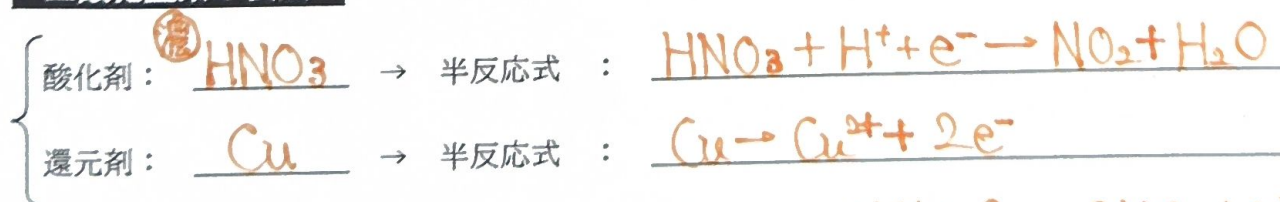 酸化剤： ㊟濃 HNO₃ → 半反応式 ： HNO₃ + H⁺ + e⁻ → NO₂ + H₂O
還元剤： Cu → 半反応式 ： Cu → Cu²⁺ + 2e⁻